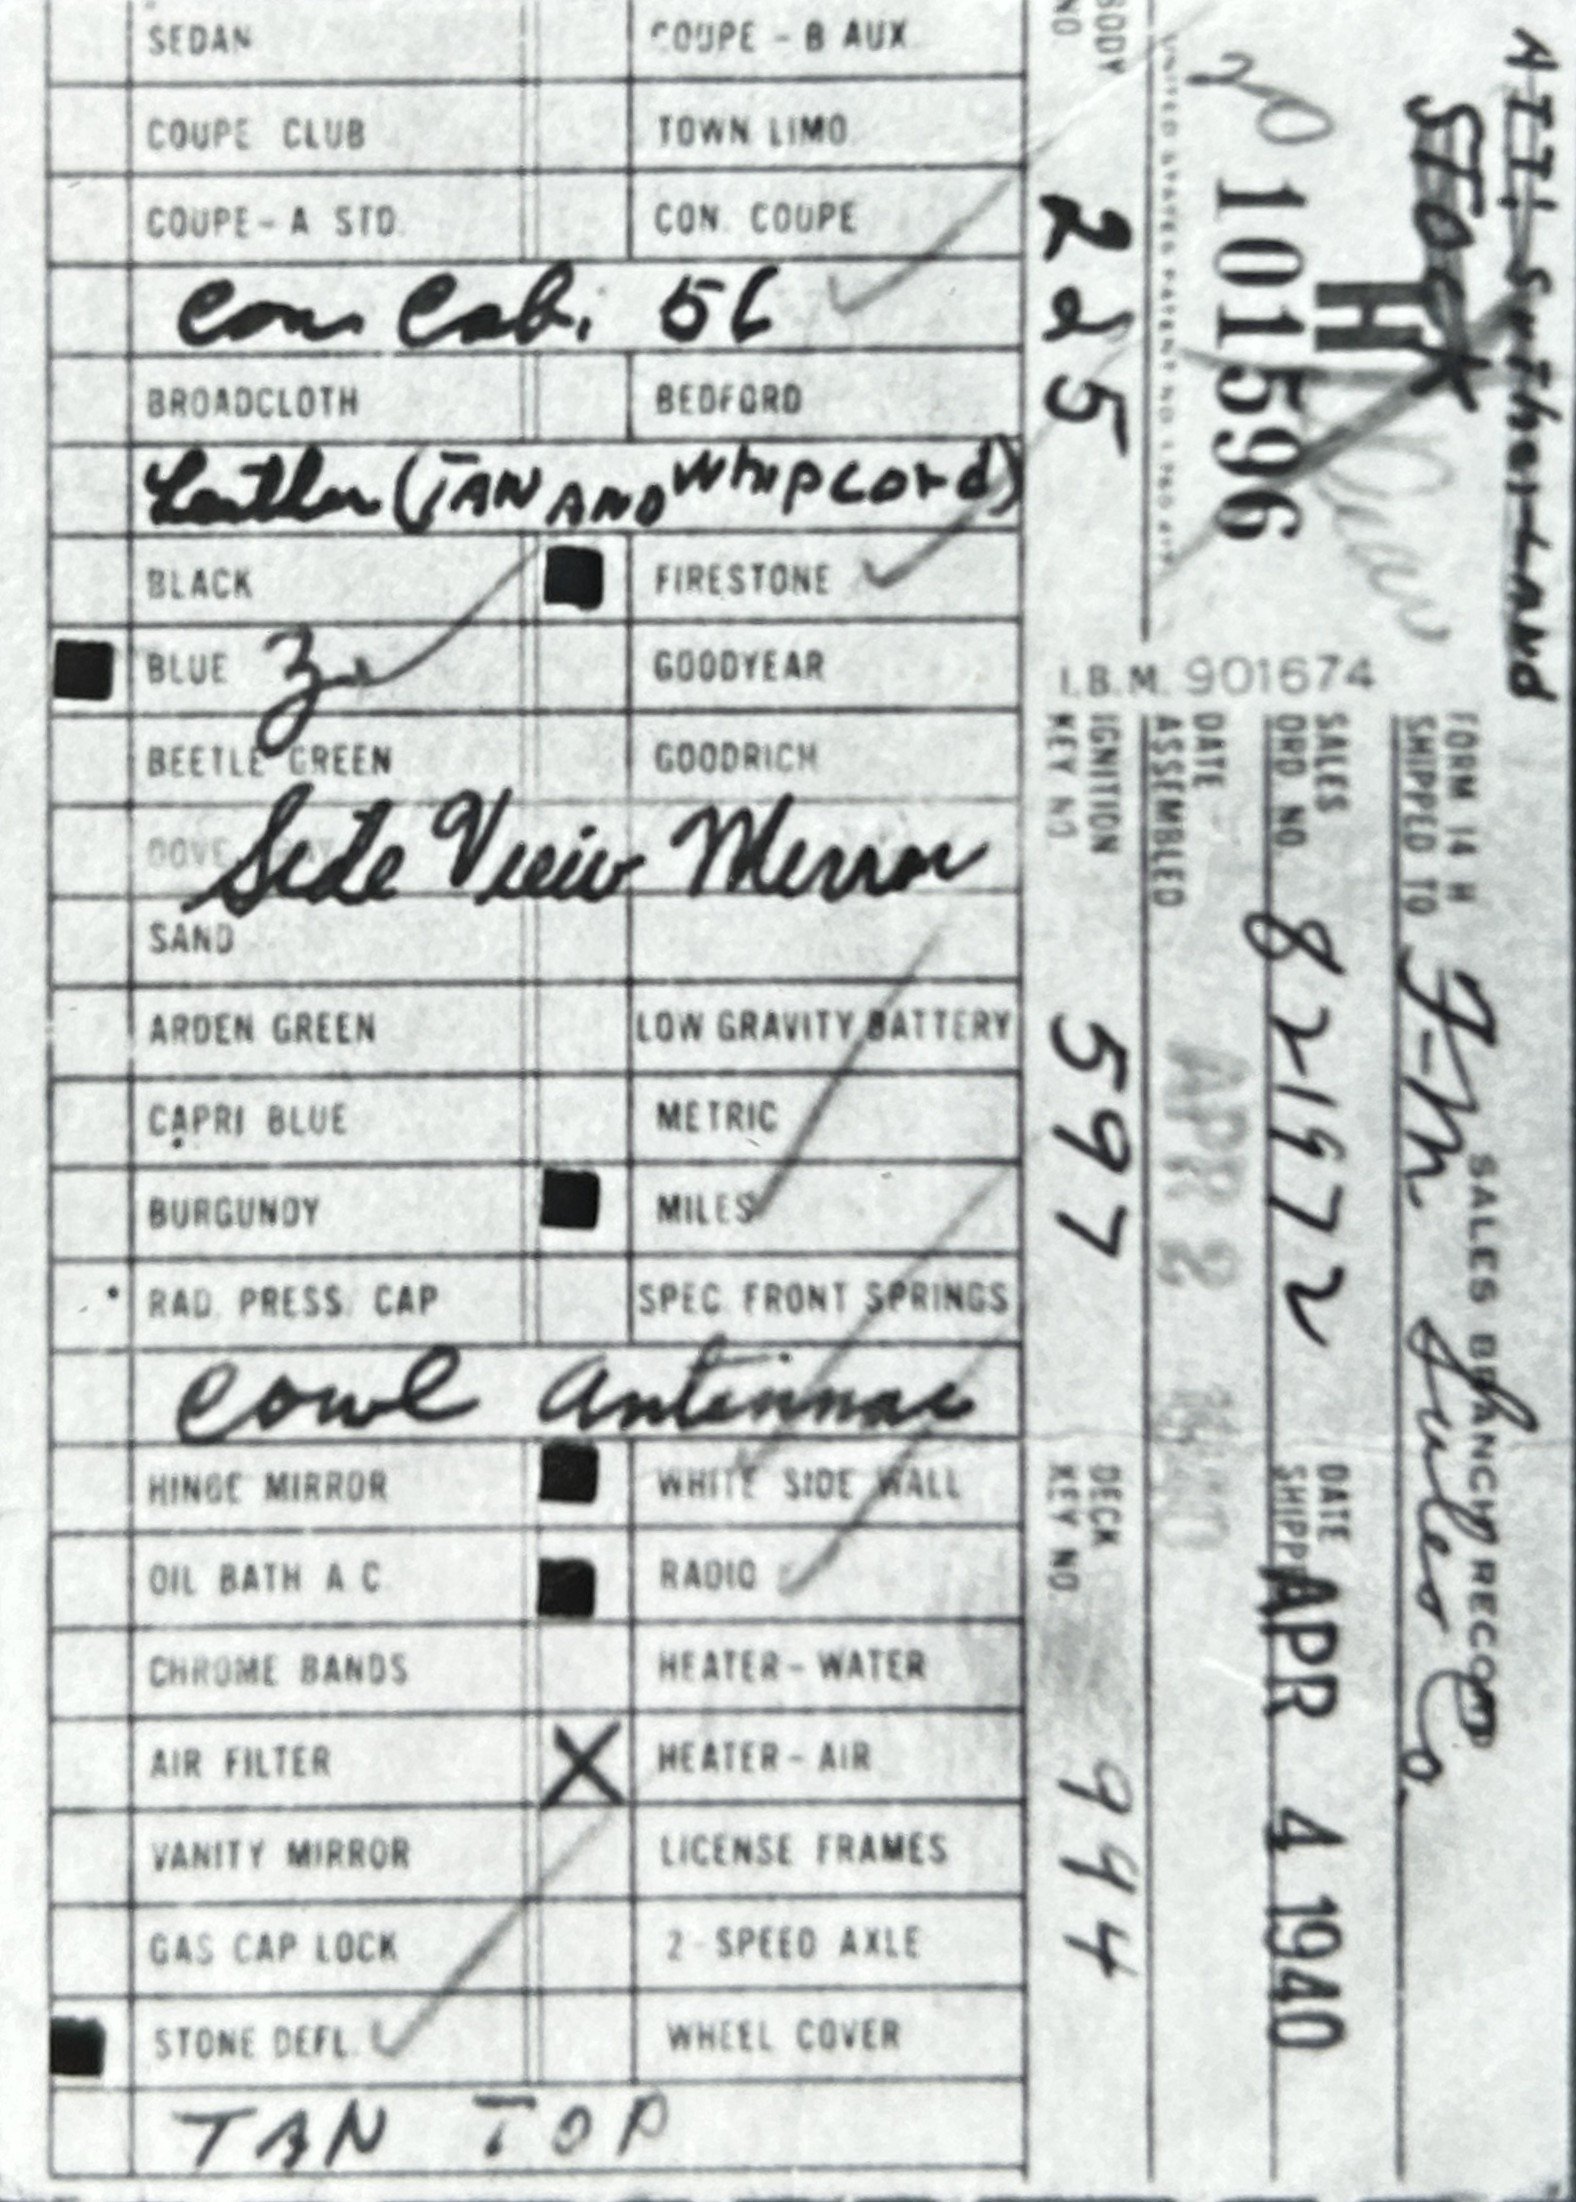 SEDAN COUPE - B AUX.
COUPE CLUB TOWN LIMO.
COUPE - A STD. CON. COUPE
Con Cab. 56
BROADCLOTH BEDFORD
Leather (TAN AND Whipcord)
BLACK FIRESTONE
BLUE
BEETLE GREEN GOODRICH
GOODYEAR
Side View Mirror
SAND
ARDEN GREEN LOW GRAVITY BATTERY
CAPRI BLUE METRIC
BURGUNDY MILES
RAD. PRESS. CAP SPEC. FRONT SPRINGS
Cowl Antennae
HINGE MIRROR WHITE SIDE WALL
OIL BATH A.C. RADIO
CHROME BANDS HEATER - WATER
AIR FILTER HEATER - AIR
VANITY MIRROR LICENSE FRAMES
GAS CAP LOCK 2 - SPEED AXLE
STONE DEFL. WHEEL COVER
TAN TOP
ATT: Sutherland
Stock
FORM 14 H SALES BRANCH RECORD
SHIPPED TO Sales Co.
H
20 101596
SALES ORD. NO. 821972 DATE SHIPPED APR 4 1940
I.B.M. 901674
UNITED STATES PATENT NO.
DATE ASSEMBLED APR 2 1940
BODY NO. 225 IGNITION KEY NO. 597 DECK KEY NO. 944